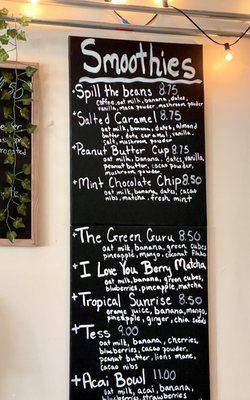 Smoothies
Spill the beans 8.75
Coffee, oat milk, banana, dates,
vanilla, maca powder, mushroom powder
Salted Caramel 8.75
oat milk, banana, dates, almond
butter, date caramel, vanilla,
salt, mushroom powder
Peanut Butter Cup 8.75
oat milk, banana, dates, vanilla,
peanut butter, cacao powder,
mushroom powder,
Mint Chocolate Chip 8.50
oat milk, banana, dates, cacao
nibs, matcha, fresh mint
The Green Guru 8.50
oat milk, banana, green cubes
pineapple, mango, coconut flakes
I Love You Berry Matcha
oat milk, banana, green cubes,
blueberries, pineapple, matcha,
Tropical Sunrise 8.50
orange juice, banana, mango,
pineapple, ginger, chia seeds
Tess 9.00
oat milk, banana, cherries,
blueberries, cacao powder,
peanut butter, lions mane,
cacao nibs
Acai Bowl 11.00
oat milk, acai, banana,
blueberries, strawberries